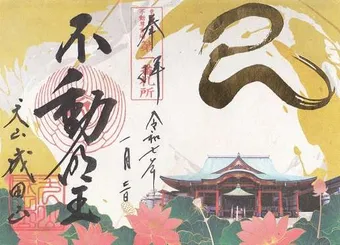 巳
奉拝
令和七年
一月三日
不動明王
犬山成田山